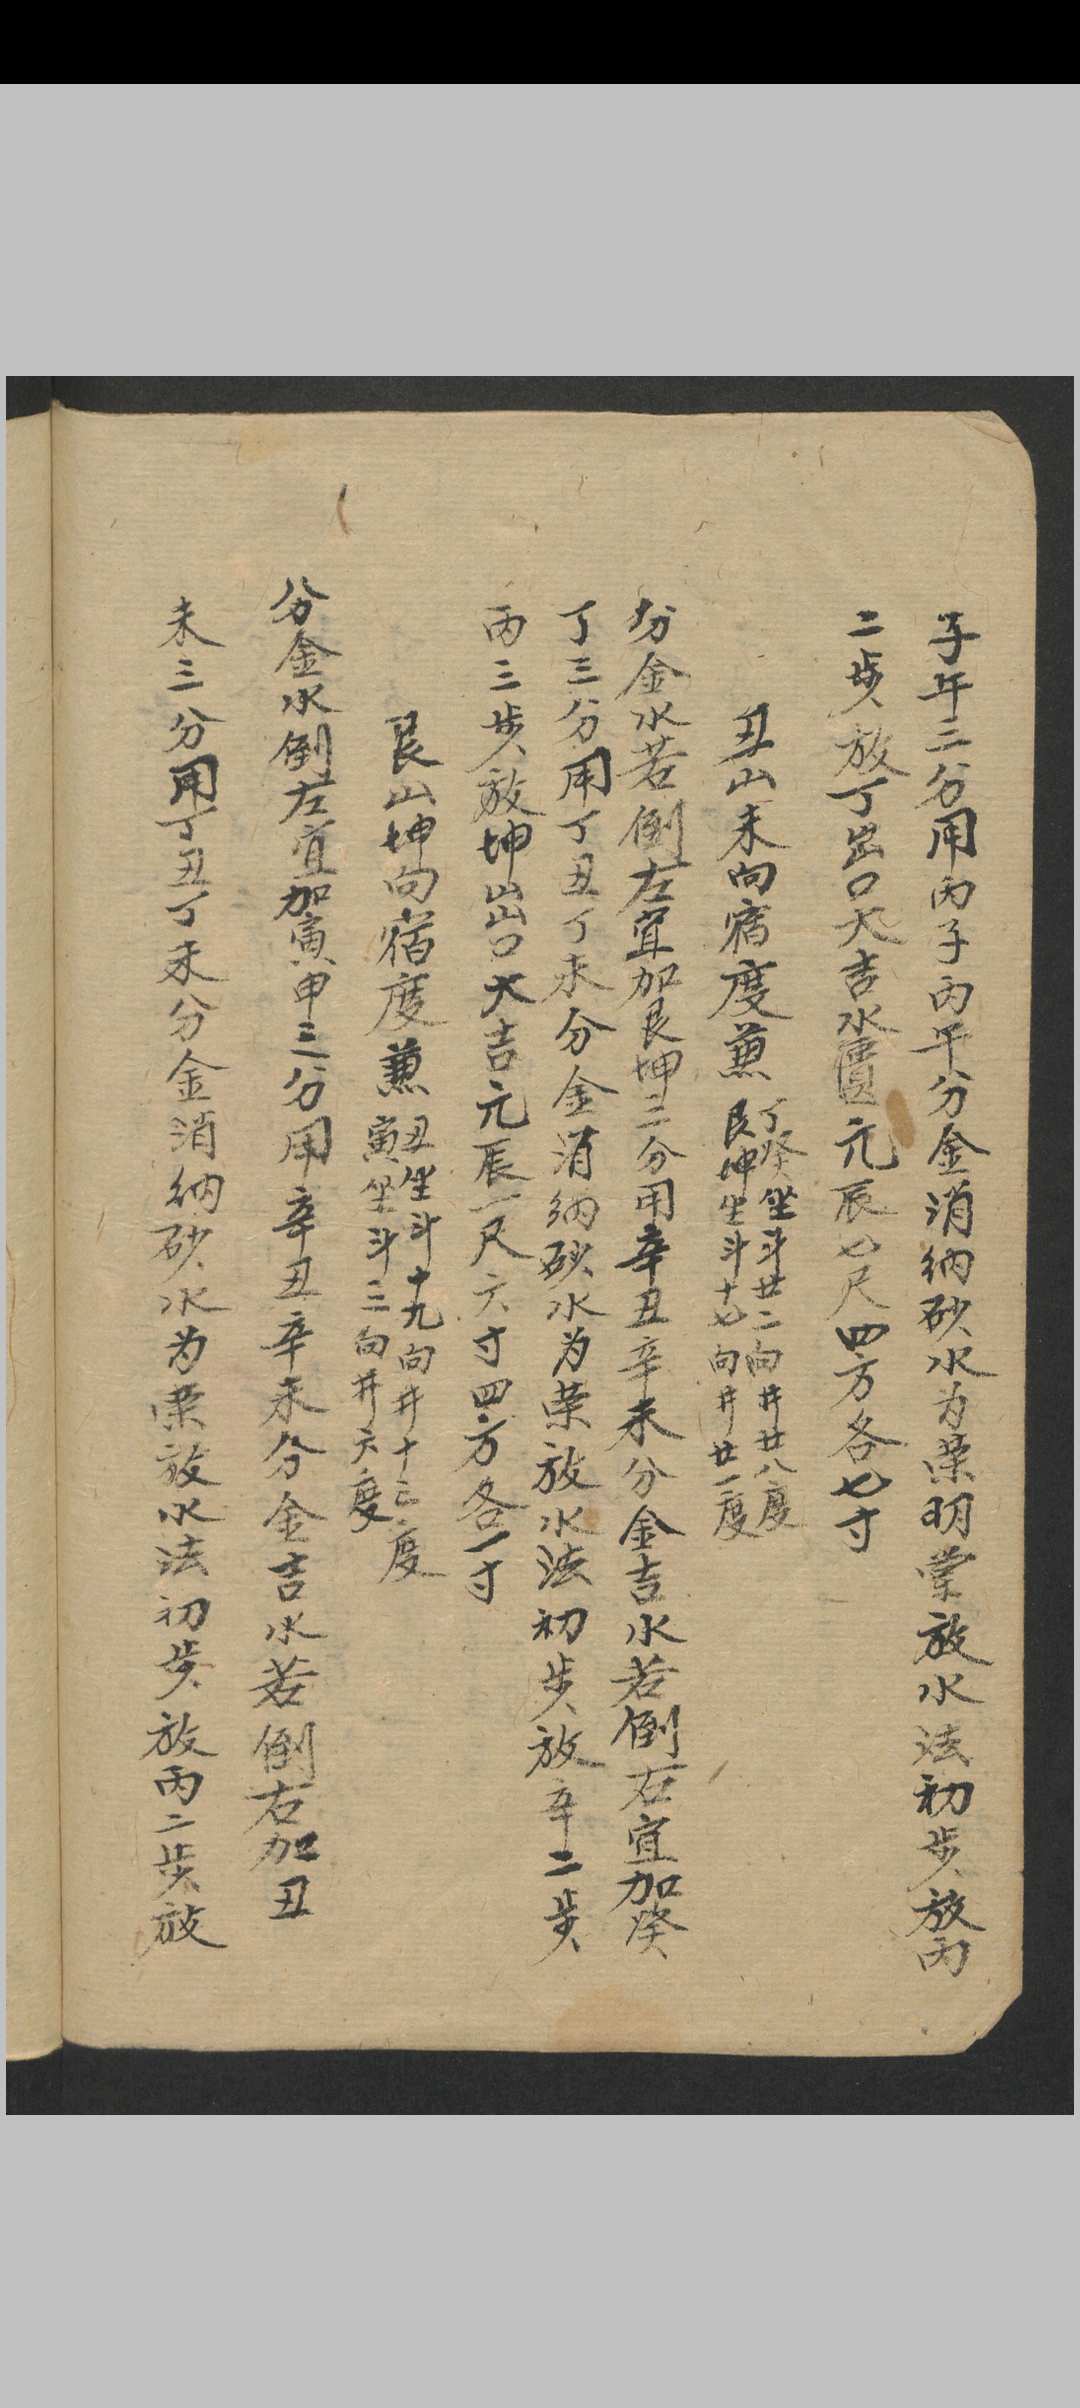 子午三分用丙子丙午分金消纳砂水为荣明堂放水法初步放丙
二步放丁出口大吉水價元辰七尺四方各七寸
丑山未向宿度兼
丁癸坐斗廿二向井廿八度
艮坤坐斗十七向井廿一度
分金水若倒左宜加艮坤三分用辛丑辛未分金吉水若倒右宜加癸
丁三分用丁丑丁未分金消纳砂水为荣放水法初步放辛二步
丙三步放坤出口大吉元辰一尺六寸四方各一寸
艮山坤向宿度兼
丑坐斗十九向井十三度
寅坐斗三向井六度
分金水倒左宜加寅申三分用辛丑辛未分金吉水若倒右加丑
未三分用丁丑丁未分金消纳砂水为荣放水法初步放丙二步放